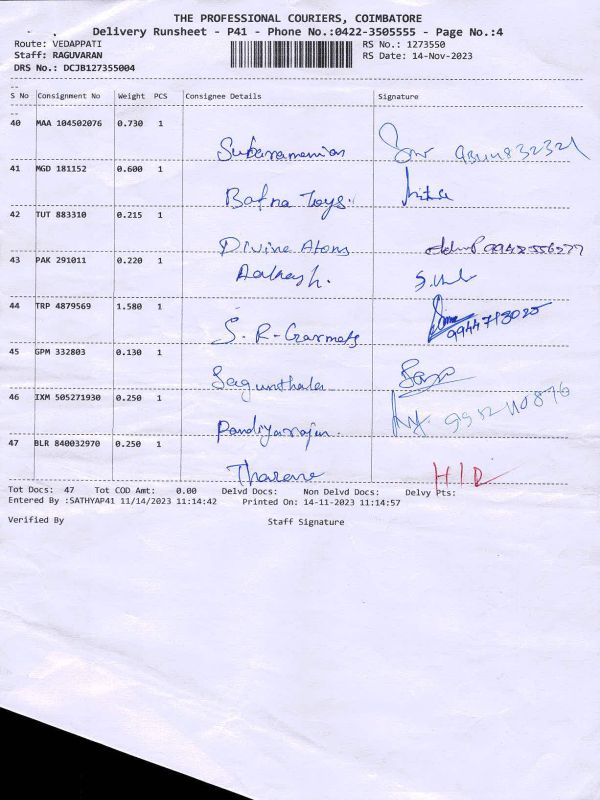 THE PROFESSIONAL COURIERS, COIMBATORE
Delivery Runsheet - P41 - Phone No.:0422-3505555 - Page No.:4
Route: VEDAPPATI RS No.: 1273550
Staff: RAGUVARAN RS Date: 14-Nov-2023
DRS No.: DCJB127355004
S No Consignment No Weight PCS Consignee Details Signature
40 MAA 104502076 0.730 1
Subaramanian
41 MGD 181152 0.600 1
Bafna Toys.
42 TUT 883310 0.215 1
Divine Atons
43 PAK 291011 0.220 1
44 TRP 4879569 1.580 1
S. R-Garmets 9944713025
45 GPM 332803 0.130 1
Sagunthala
46 IXM 505271930 0.250 1
Pandiyarajan.
47 BLR 840032970 0.250 1
Tharane H/D
Tot Docs: 47 Tot COD Amt: 0.00 Delvd Docs: Non Delvd Docs: Delvy Pts:
Entered By :SATHYAP41 11/14/2023 11:14:42 Printed On: 14-11-2023 11:14:57
Verified By Staff Signature